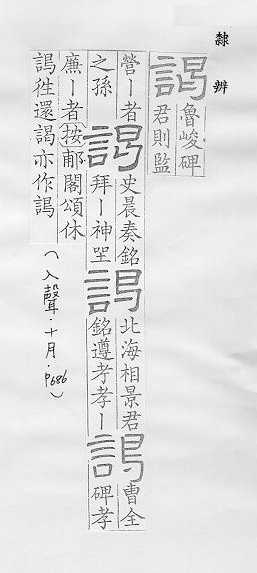 隸辨
謁 魯峻碑
君則監
營丨者
之孫 謁 史晨奏銘
拜丨神坐 謁 北海相景君
銘遵考孝丨 謁 曹全
碑孝
廉丨者按郙閣頌休
謁徃還謁亦作謁
(入聲·十月·p686)